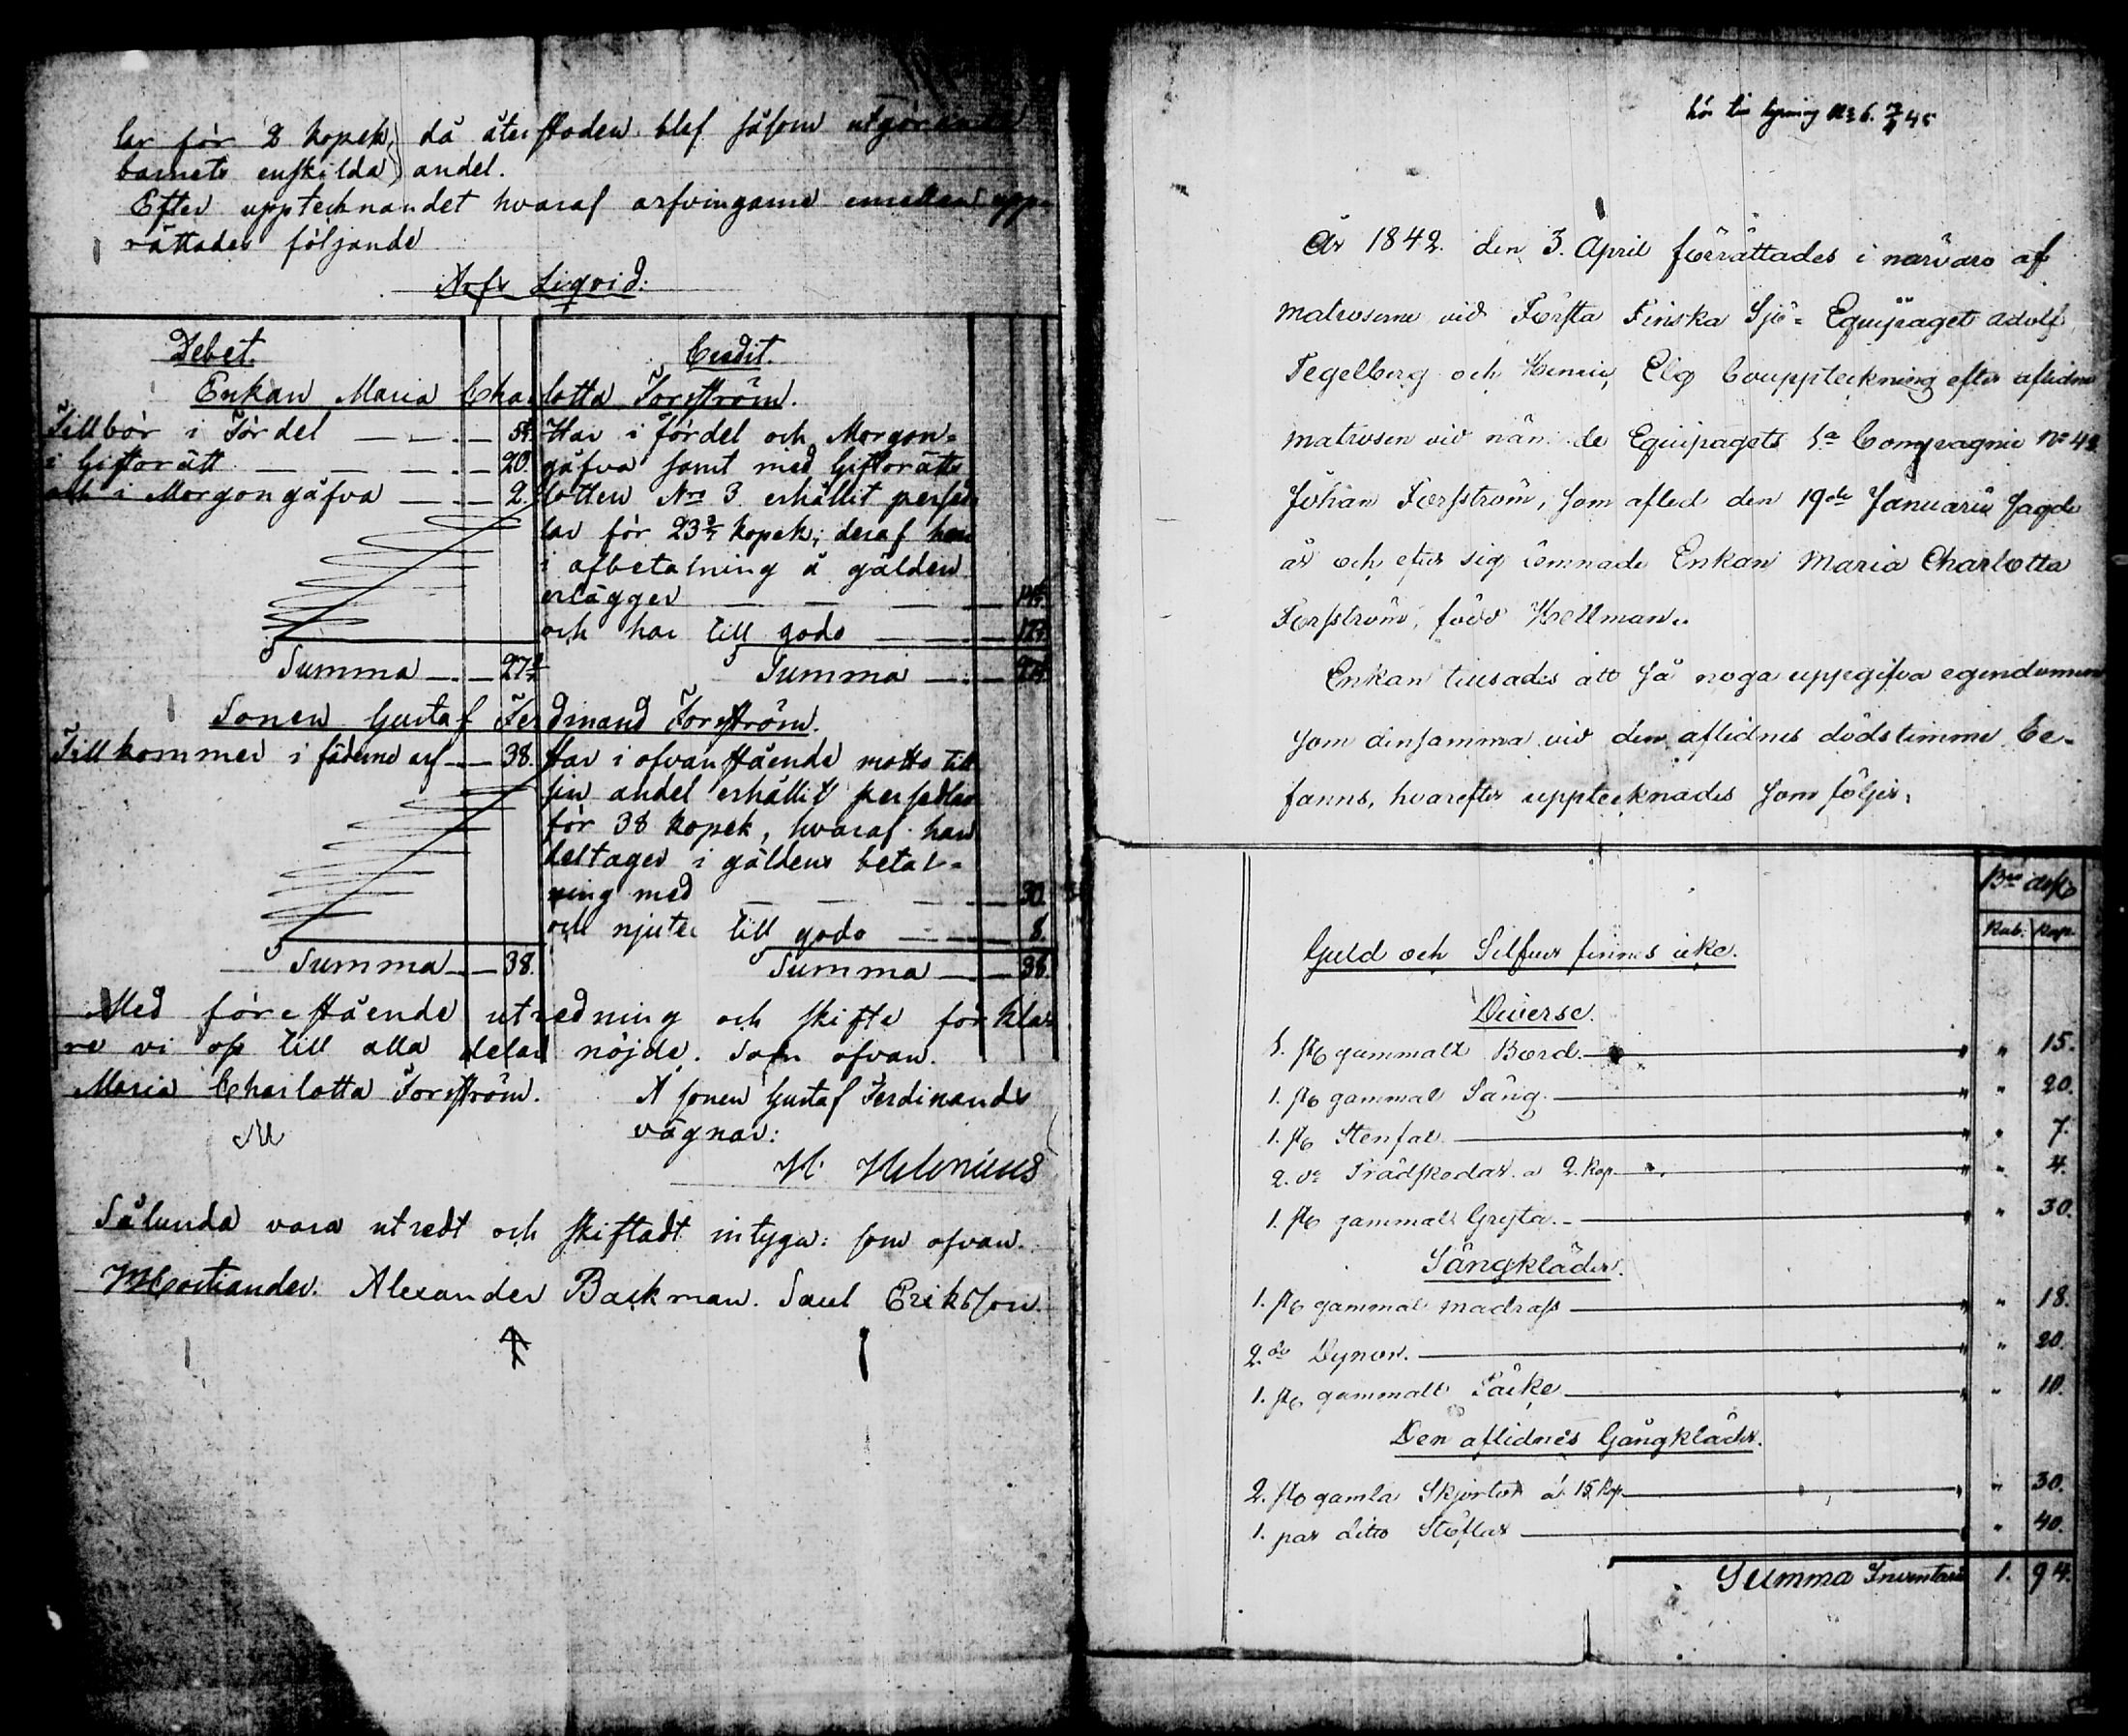 lar för 2 kopek, då återstoden blef såsom utgörande
barnets enskilda andel.
Efter upptecknandet hvaraf arfvingarne emellan upp-
rättades följande
Arfs Liqvid:
Debet. Credit.
Enkan Maria Charlotta Forsström.
Tillbör i Fördel — — 5
i Giftorätt — — — 20.
och i Morgongåfva — — 2.
Summa — 27
Har i fördel och Morgon-
gåfva samt med Giftorätts
lotten No 3 erhållit persed-
lar för 23 kopek; deraf hon
i afbetalning å gälden
erlägger — — —
och har till godo — —
Summa —
Sonen Gustaf Ferdinand Forsström.
Tillkommer i fäderne arf — 38.
Summa — 38.
Har i ofvanstående motto till
sin andel erhållit persedlar
för 38 kopek, hvaraf han
deltager i gäldens betal-
ning med — — — 30.
och njuter till godo — — 8.
Summa — 38.
Med förestående utredning och skifte förkla-
re vi oss till alla delar nöjde. Som ofvan.
Maria Charlotta Forsström. Å sonen Gustaf Ferdinands
vägnar:
H. Helenius
Sålunda vara utredt och skiftadt intyga: som ofvan.
Alexander Backman. Saul Eriksson.
hör till
År 1842. den 3. April förrättades i närvaro af
matroserne vid Första Finska Sjö-Equipaget Adolf
Tegelberg och Elg Bouppteckning efter aflidne
matrosen vid nämnde Equipagets 1a Compagnie No 42
Johan Forsström, som afled den 19de Januarii sagde
år och efter sig lemnade Enkan Maria Charlotta
Forsström, född Hellman.
Enkan tillsades att så noga uppgifva egendomen
som densamma vid den aflidnes dödstimme be-
fanns, hvarefter upptecknades som följer:
Rub. Kop.
Guld och Silfver finnes icke.
Diverse.
1. st. gammalt Bord. — " 15.
1. st. gammal Säng. — " 20.
1. st. Stenfat — " 7.
2. do Trädskedar a 2. Kop — " 4.
1. st. gammal Gryta. — " 30.
Sängkläder.
1. st. gammal madrass — " 18.
2. do Dynor. — " 20.
1. st. gammalt Täcke — " 10.
Den aflidnes Gångkläder.
2. st. gamla Skjortor á 15 Kop — " 30.
1. par ditto Stöflar — " 40.
Summa Inventarii 1. 94.